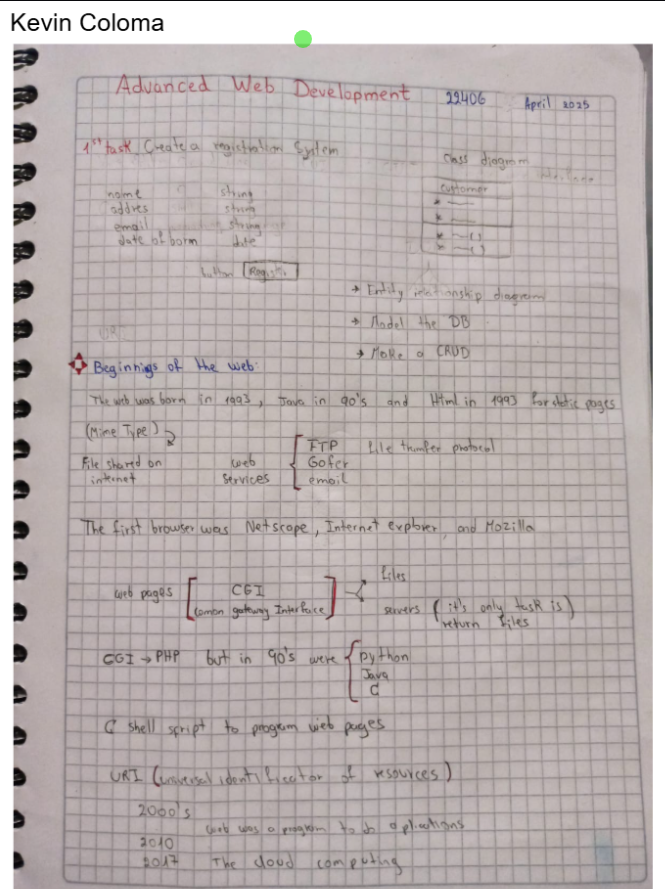 Kevin Coloma
Advanced Web Development 22406 April 2025
1st task Create a registration system
class diagram
customer
name string
addres string
email string
date of born date
button Register
→ Entity relationship diagram
→ Model the DB
→ Make a CRUD
Beginnings of the web:
The web was born in 1993, Java in 90's and Html in 1993 for static pages
(Mime Type)
File shared on internet
web services
FTP file tranfer protocol
Gofer
email
The first browser was Netscape, Internet explorer, and Mozilla
web pages
CGI
Comon gateway Interface
files
servers (it's only task is return files)
CGI → PHP but in 90's were
python
Java
C
C shell script to progam web pages
URI (universal identificator of resources)
2000's
web was a program to do aplications
2010
2017 The cloud computing